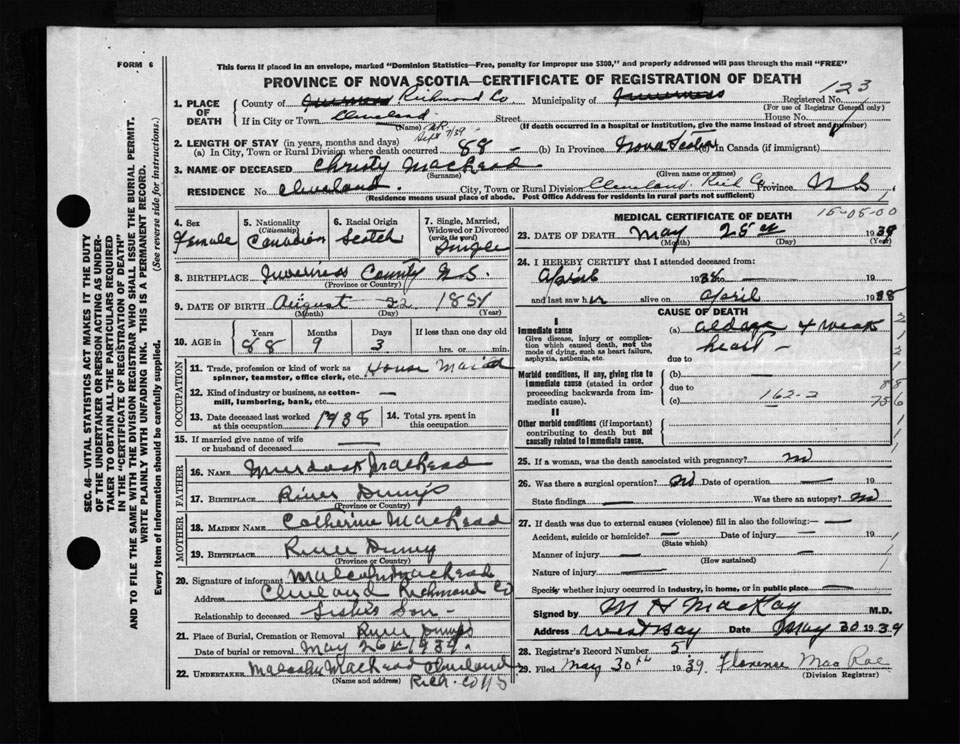 FORM 6
This form if placed in an envelope, marked "Dominion Statistics—Free, penalty for improper use $300," and properly addressed will pass through the mail "FREE"
PROVINCE OF NOVA SCOTIA—CERTIFICATE OF REGISTRATION OF DEATH
123
1. PLACE OF DEATH
County of Inverness Richmond Co. Municipality of Inverness Registered No.
(For use of Registrar General only)
If in City or Town Cleveland Street House No.
(Name) (If death occurred in a hospital or institution, give the name instead of street and number)
Sept 7/39
2. LENGTH OF STAY (in years, months and days)
(a) In City, Town or Rural Division where death occurred 88 - (b) In Province Nova Scotia (c) In Canada (if immigrant)
3. NAME OF DECEASED Christy MacLeod
(Surname) (Given name or names)
RESIDENCE No. Cleveland. City, Town or Rural Division Cleveland Rich Co Province N S
(Residence means usual place of abode. Post Office Address for residents in rural parts not sufficient)
4. Sex Female
5. Nationality (Citizenship) Canadian
6. Racial Origin Scotch
7. Single, Married, Widowed or Divorced (write the word) Single
8. BIRTHPLACE Inverness County N.S.
(Province or Country)
9. DATE OF BIRTH August 22 185
(Month) (Day) (Year)
10. AGE in Years 88 Months 9 Days 3 If less than one day old hrs. or min.
OCCUPATION
11. Trade, profession or kind of work as spinner, teamster, office clerk, etc. House Maid
12. Kind of industry or business, as cotton-mill, lumbering, bank, etc. —
13. Date deceased last worked at this occupation 1938
14. Total yrs. spent in this occupation
15. If married give name of wife or husband of deceased —
FATHER
16. NAME Murdock MacLeod
17. BIRTHPLACE River Dennys
(Province or Country)
MOTHER
18. MAIDEN NAME Catherine MacLeod
19. BIRTHPLACE River Denny
(Province or Country)
20. Signature of informant Malcolm MacLeod
Address Cleveland Richmond Co
Relationship to deceased Sister Son -
21. Place of Burial, Cremation or Removal River Dennys
Date of burial or removal May 26th 1939.
22. UNDERTAKER Malcolm MacLeod Cleveland
(Name and address) Rich. Co N S
MEDICAL CERTIFICATE OF DEATH
15-05-00
23. DATE OF DEATH May 25th 1939
(Month) (Day) (Year)
24. I HEREBY CERTIFY that I attended deceased from:
April 1938 — 19
and last saw her alive on April 1938
CAUSE OF DEATH
I
Immediate cause
Give disease, injury or complication which caused death, not the mode of dying, such as heart failure, asphyxia, asthenia, etc.
(a) old age & weak
heart -
due to
Morbid conditions, if any, giving rise to immediate cause (stated in order proceeding backwards from immediate cause).
(b) —
due to
(c) 162-2
II
Other morbid conditions (if important) contributing to death but not causally related to immediate cause.
25. If a woman, was the death associated with pregnancy? no
26. Was there a surgical operation? no Date of operation —
State findings — Was there an autopsy? no
27. If death was due to external causes (violence) fill in also the following:- —
Accident, suicide or homicide? — Date of injury — 19
(State which)
Manner of injury —
(How sustained)
Nature of injury —
Specify whether injury occurred in industry, in home, or in public place —
Signed by M H MacKay M.D.
Address West Bay Date May 30 1939
28. Registrar's Record Number 5
29. Filed May 30th 1939. Florence MacRae
(Division Registrar)
SEC. 46—VITAL STATISTICS ACT MAKES IT THE DUTY OF THE UNDERTAKER OR PERSON ACTING AS UNDERTAKER TO OBTAIN ALL THE PARTICULARS REQUIRED IN THE "CERTIFICATE OF REGISTRATION OF DEATH" AND TO FILE THE SAME WITH THE DIVISION REGISTRAR WHO SHALL ISSUE THE BURIAL PERMIT.
WRITE PLAINLY WITH UNFADING INK. THIS IS A PERMANENT RECORD.
Every item of information should be carefully supplied. (See reverse side for instructions.)